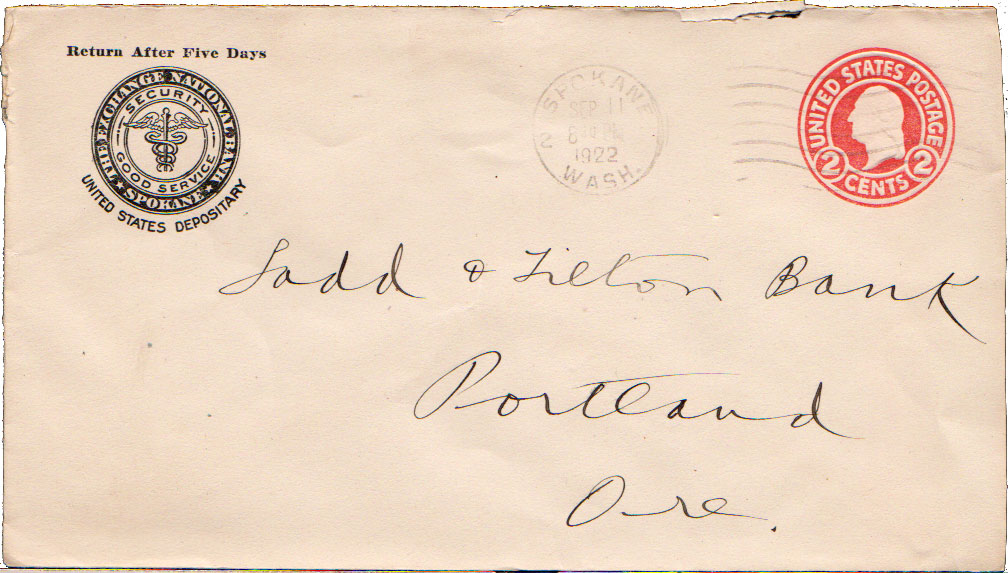 Return After Five Days
THE EXCHANGE NATIONAL BANK
SPOKANE
SECURITY
GOOD SERVICE
UNITED STATES DEPOSITARY
SPOKANE
SEP 11
8
1922
WASH.
2
UNITED STATES POSTAGE
2 CENTS 2
Ladd & Tilton Bank
Portland
Ore.